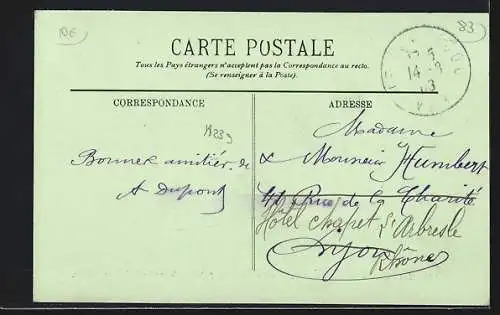 RE
83
CARTE POSTALE
Tous les Pays étrangers n'acceptent pas la Correspondance au recto.
(Se renseigner à la Poste).
CORRESPONDANCE
ADRESSE
14 - 8
03
Bonnes amitiés de
A Dupont
Madame
& Monsieur Humbert
41 Rue de la Charité
Hôtel Chapet L'Arbresle
Lyon
Rhône